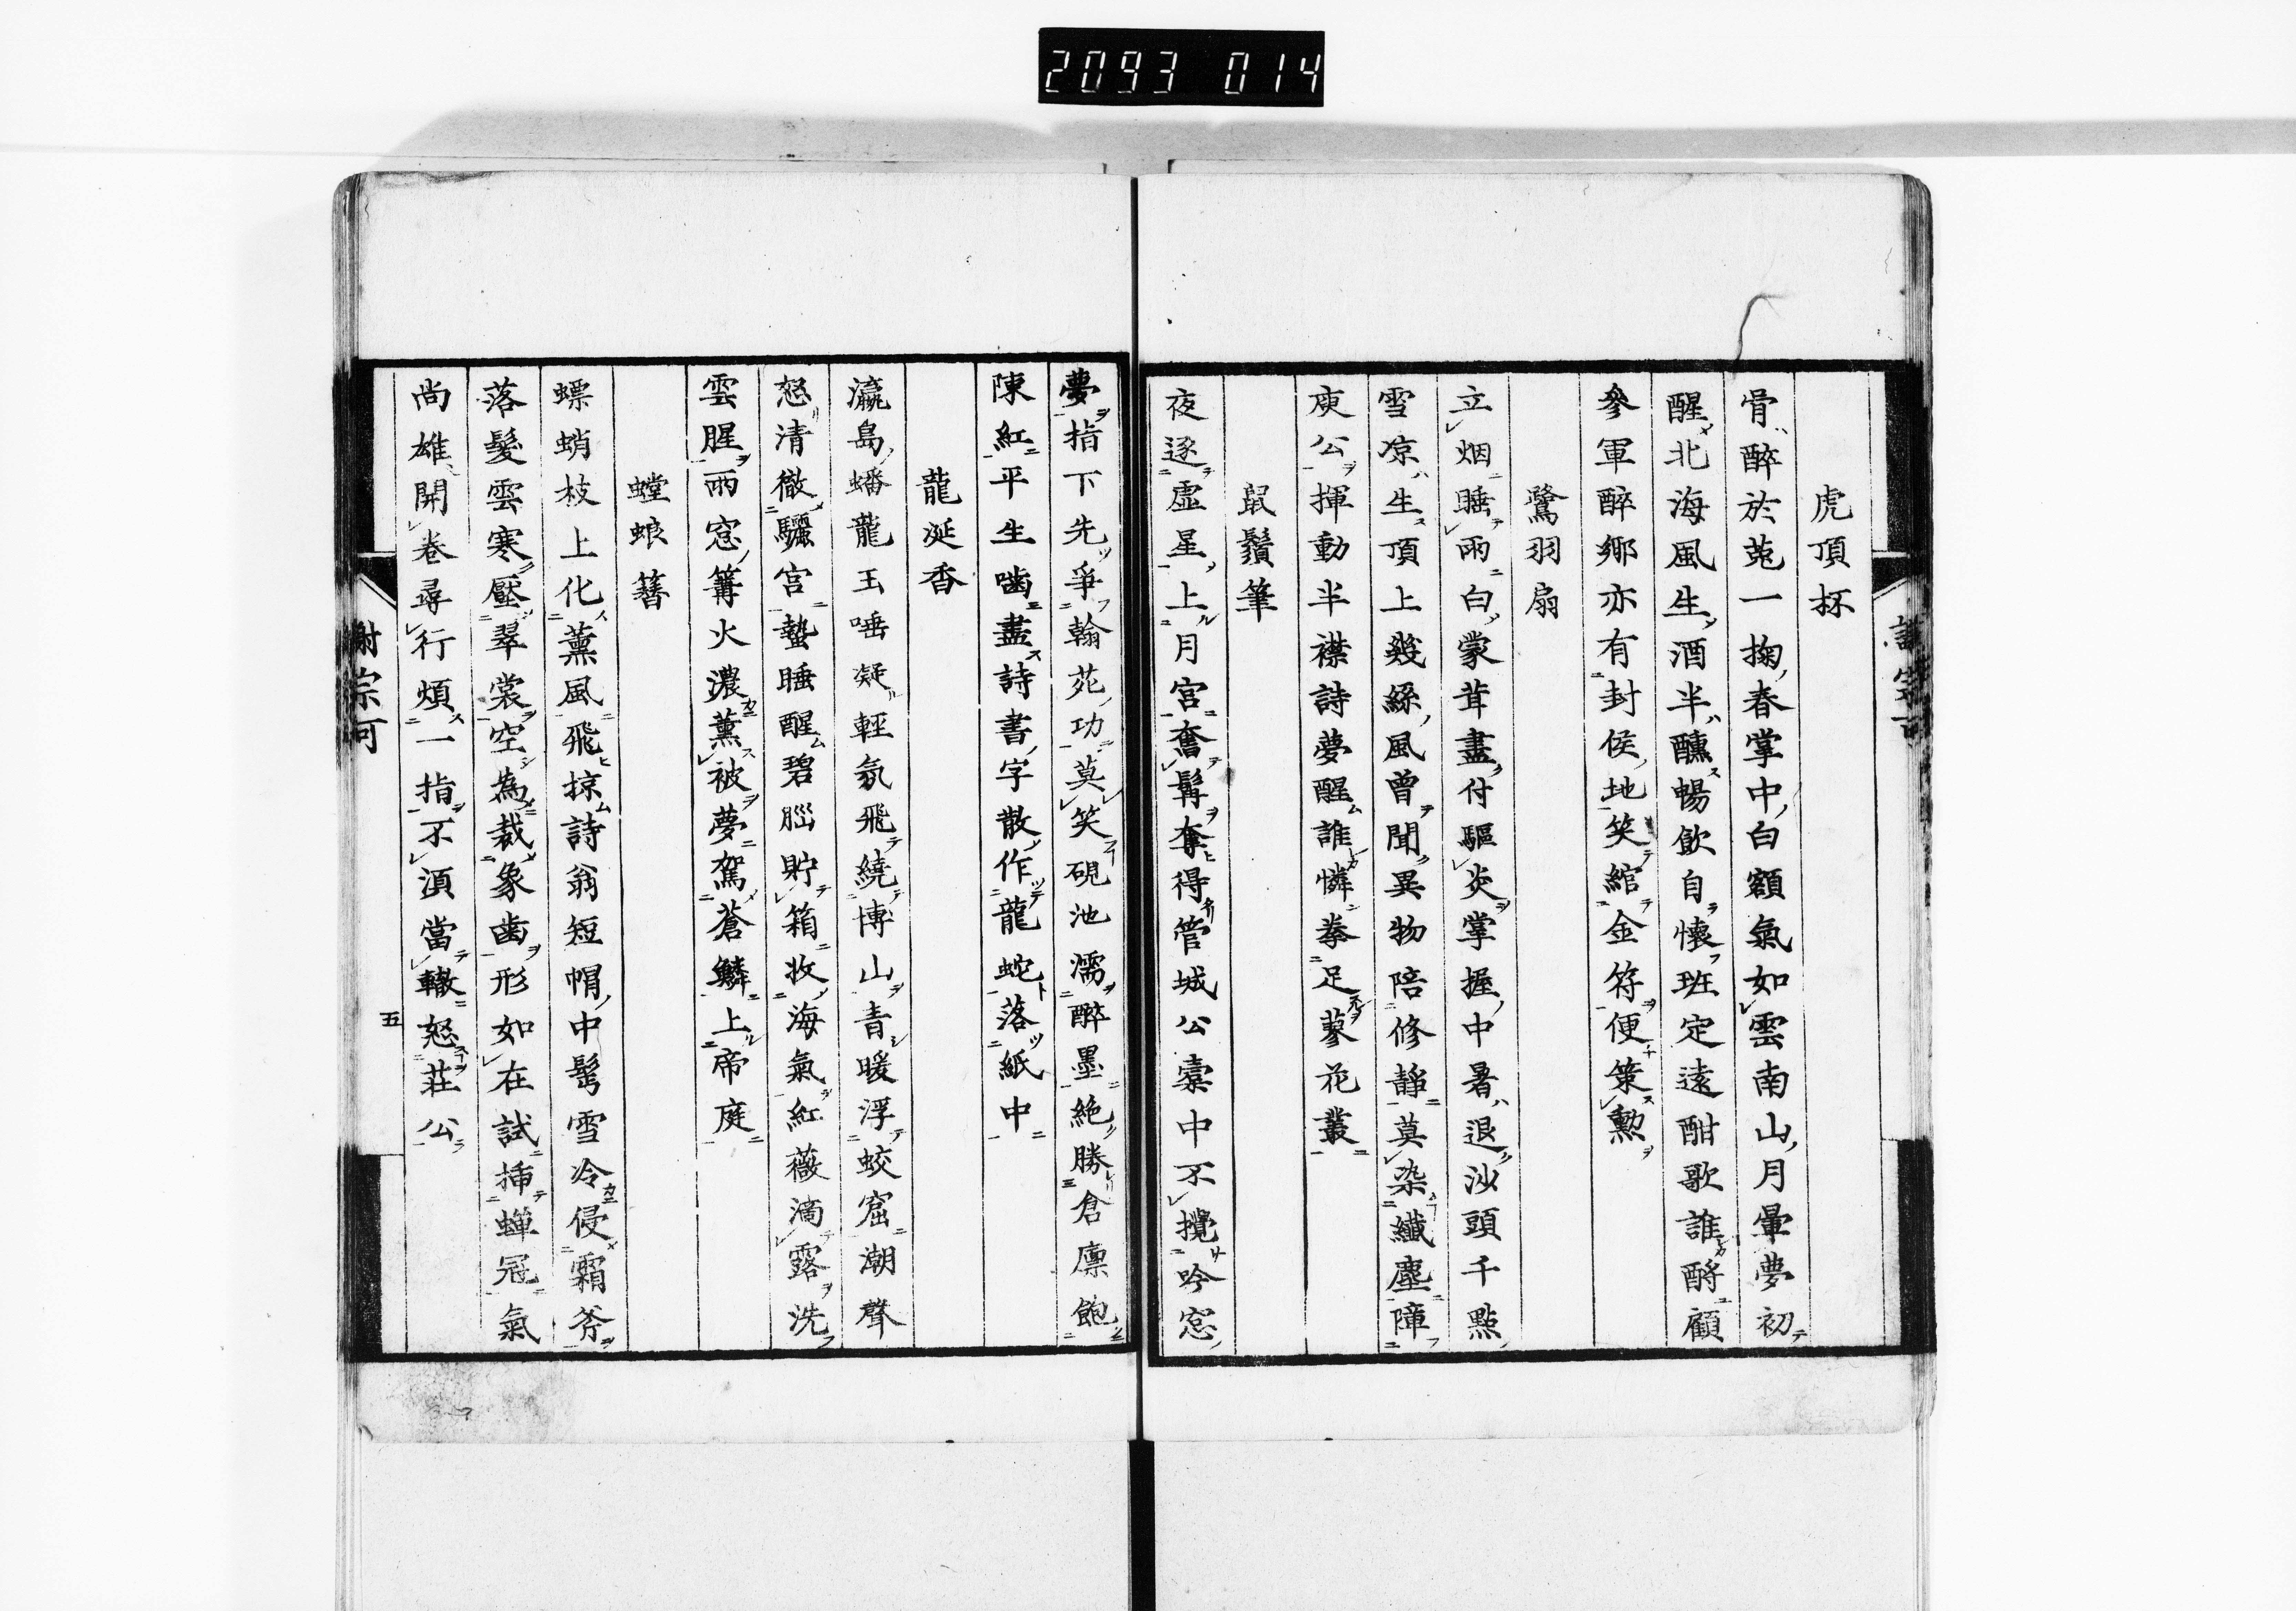 2093 014
虎頂杯
骨醉於菟一掬春掌中白額氣如雲南山月暈夢初
醒北海風生酒半醺暢飲自懷班定遠酣歌誰酹顧
參軍醉鄉亦有封侯地笑綰金符便策勲
鷺羽扇
立烟睡雨白蒙茸盡付驅炎掌握中暑退沙頭千點
雪凉生頂上幾絲風曾聞異物陪修靜莫染纖塵障
庾公揮動半襟詩夢醒誰憐拳足蓼花叢
鼠鬚筆
夜逐虛星上月宮奮髯奪得管城公橐中不攪吟窓
夢指下先爭翰苑功莫笑硯池濡醉墨絶勝倉廪飽
陳紅平生嚙盡詩書字散作龍蛇落紙中
龍涎香
瀛島蟠龍玉唾凝輕氛飛繞博山青暖浮蛟窟潮聲
怒清徹驪宮蟄睡醒碧腦貯箱收海氣紅薇滴露洗
雲腥雨窓篝火濃薰被夢駕蒼鱗上帝庭
螳蜋簪
螵蛸枝上化薰風飛掠詩翁短帽中髩雪冷侵霜斧
落髮雲寒壓翠裳空為裁象齒形如在試揷蟬冠氣
尚雄開卷尋行煩一指不湏當轍怒莊公
謝宗可
五